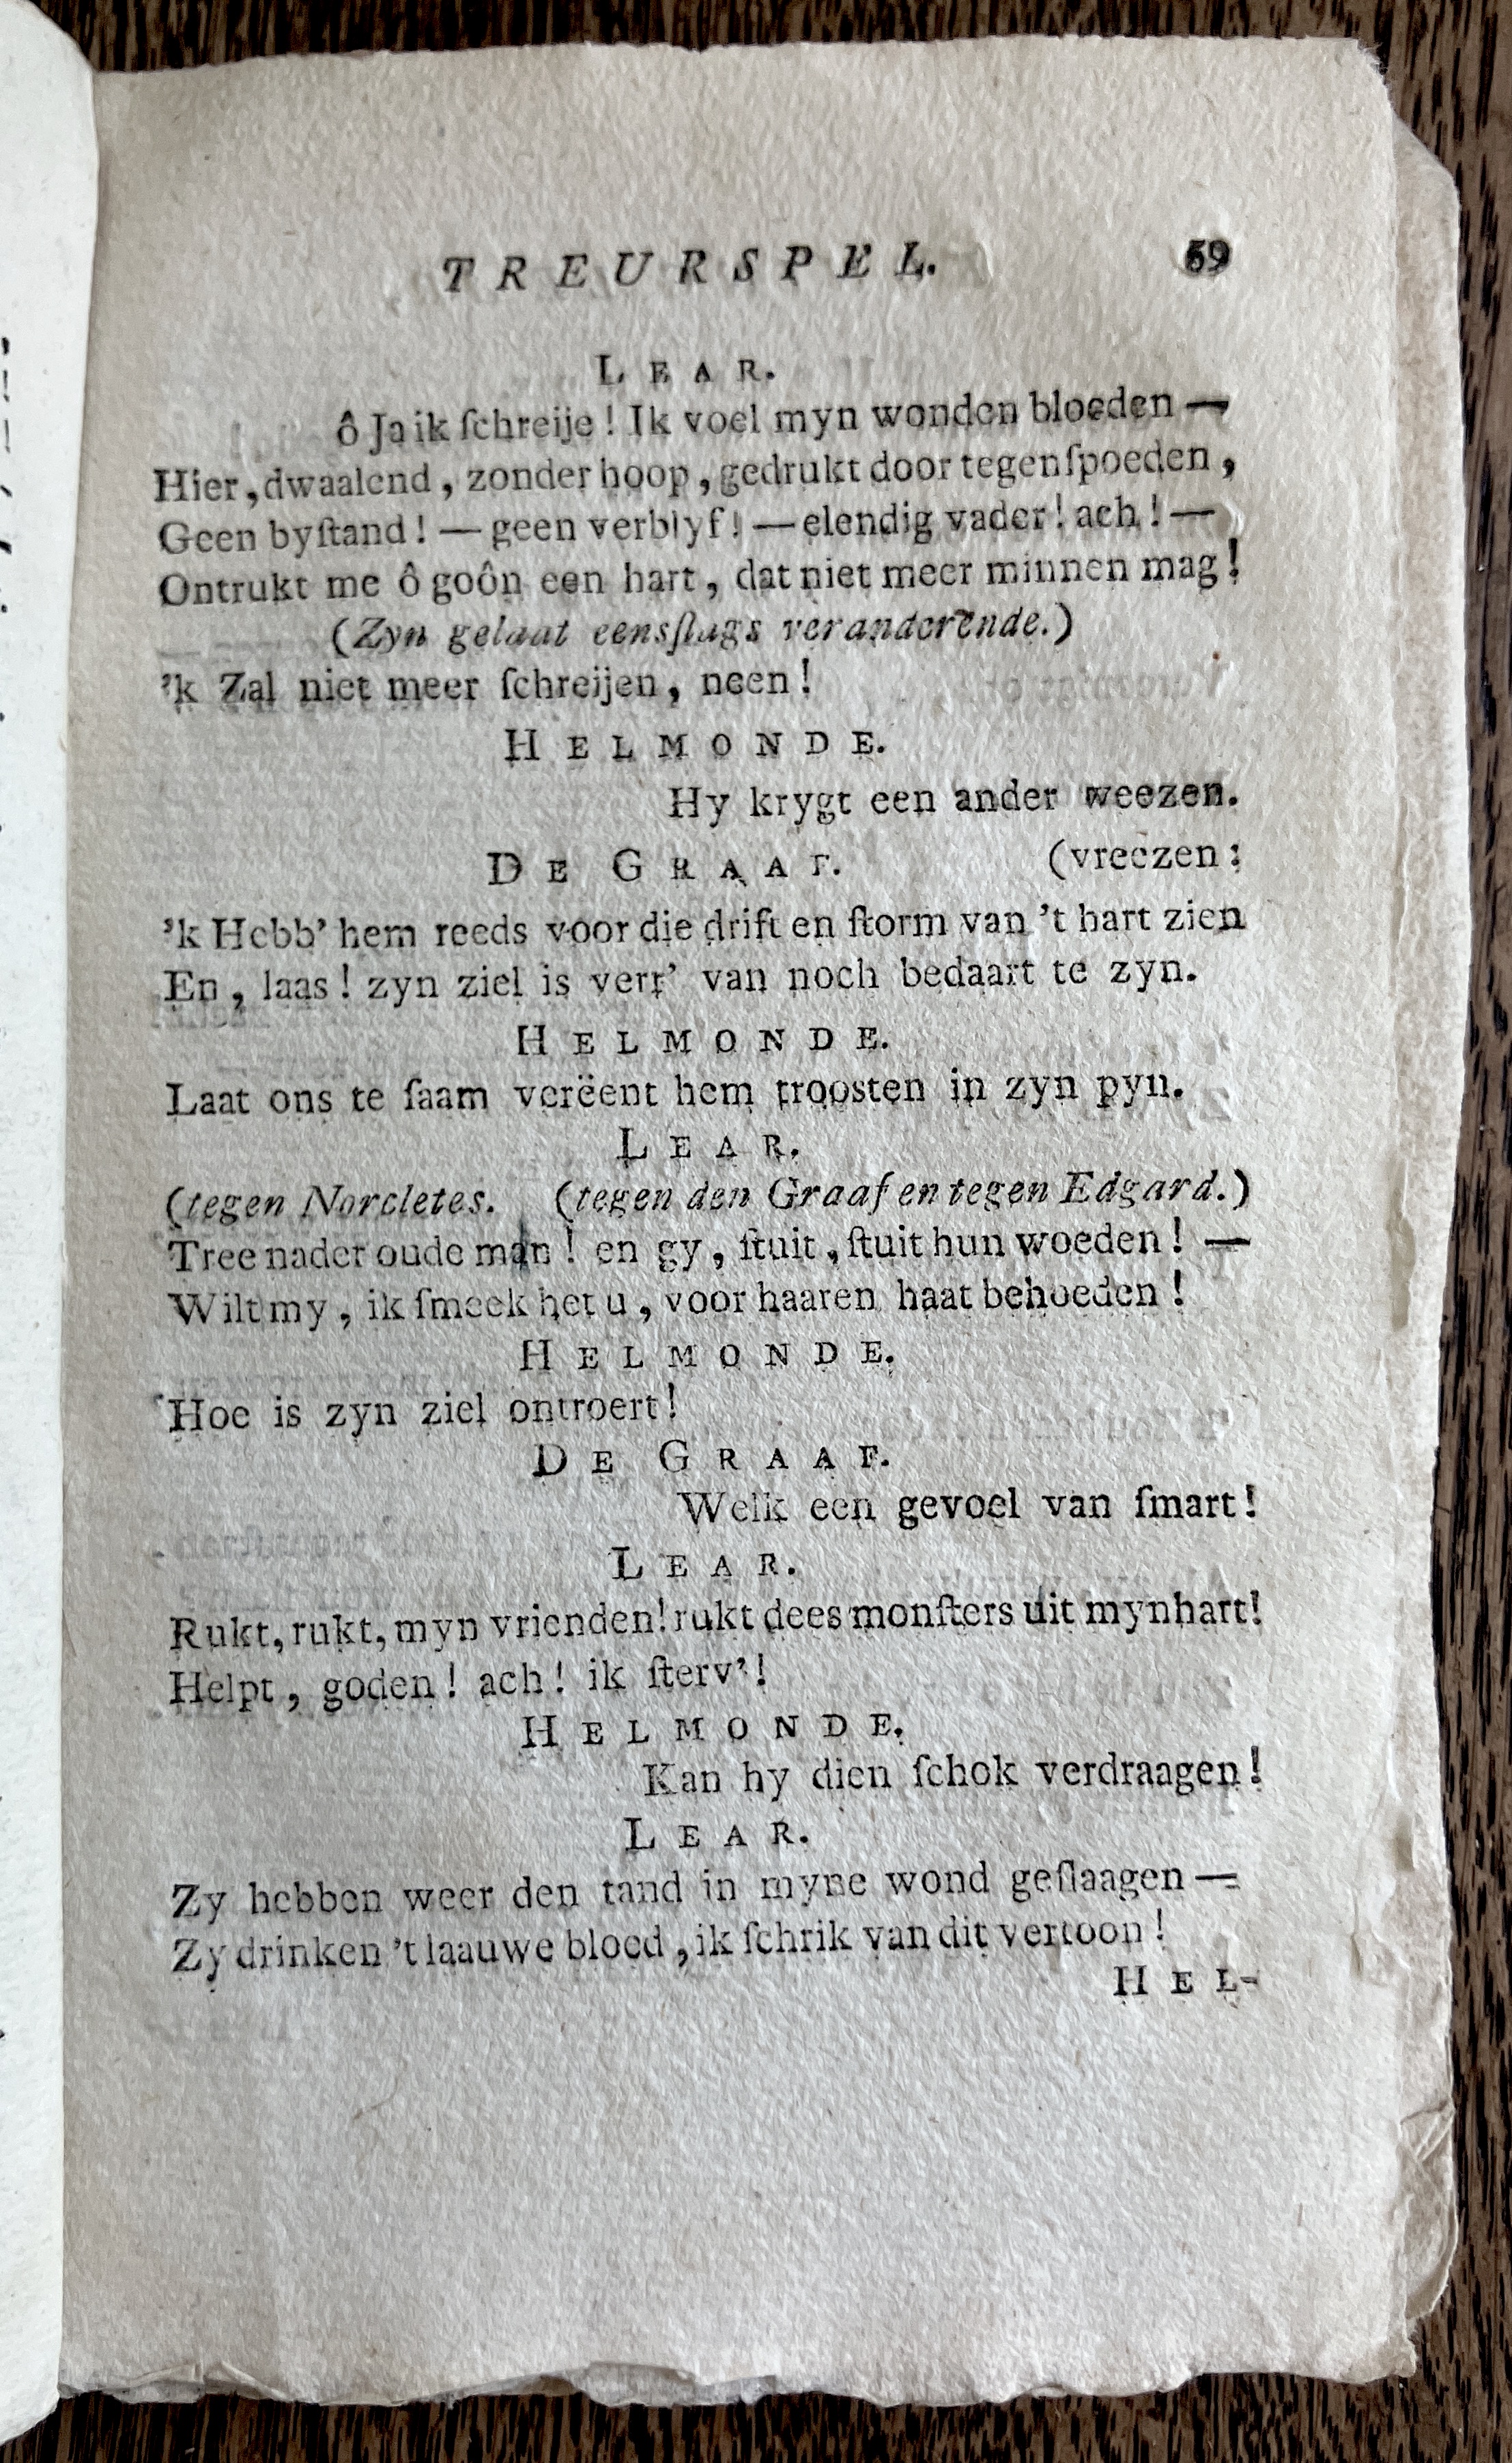 TREURSPEL. 69
LEAR.
ô Ja ik ſchreije! Ik voel myn wonden bloeden —
Hier, dwaalend, zonder hoop, gedrukt door tegenſpoeden,
Geen byſtand! — geen verblyf! — elendig vader! ach! —
Ontrukt me ô goôn een hart, dat niet meer minnen mag!
(Zyn gelaat eensſlags veranderende.)
'k Zal niet meer ſchreijen, neen!
HELMONDE.
Hy krygt een ander weezen.
DE GRAAF. (vreezen:
'k Hebb' hem reeds voor die drift en ſtorm van 't hart zien
En, laas! zyn ziel is verr' van noch bedaart te zyn.
HELMONDE.
Laat ons te ſaam verëent hem troosten in zyn pyn.
LEAR.
(tegen Norcletes. (tegen den Graaf en tegen Edgard.)
Tree nader oude man! en gy, ſtuit, ſtuit hun woeden! —
Wilt my, ik ſmeek het u, voor haaren haat behoeden!
HELMONDE.
Hoe is zyn ziel ontroert!
DE GRAAF.
Welk een gevoel van ſmart!
LEAR.
Rukt, rukt, myn vrienden! rukt dees monſters uit myn hart!
Helpt, goden! ach! ik ſterv'!
HELMONDE.
Kan hy dien ſchok verdraagen!
LEAR.
Zy hebben weer den tand in myne wond geſlaagen —
Zy drinken 't laauwe bloed, ik ſchrik van dit vertoon!
HEL-